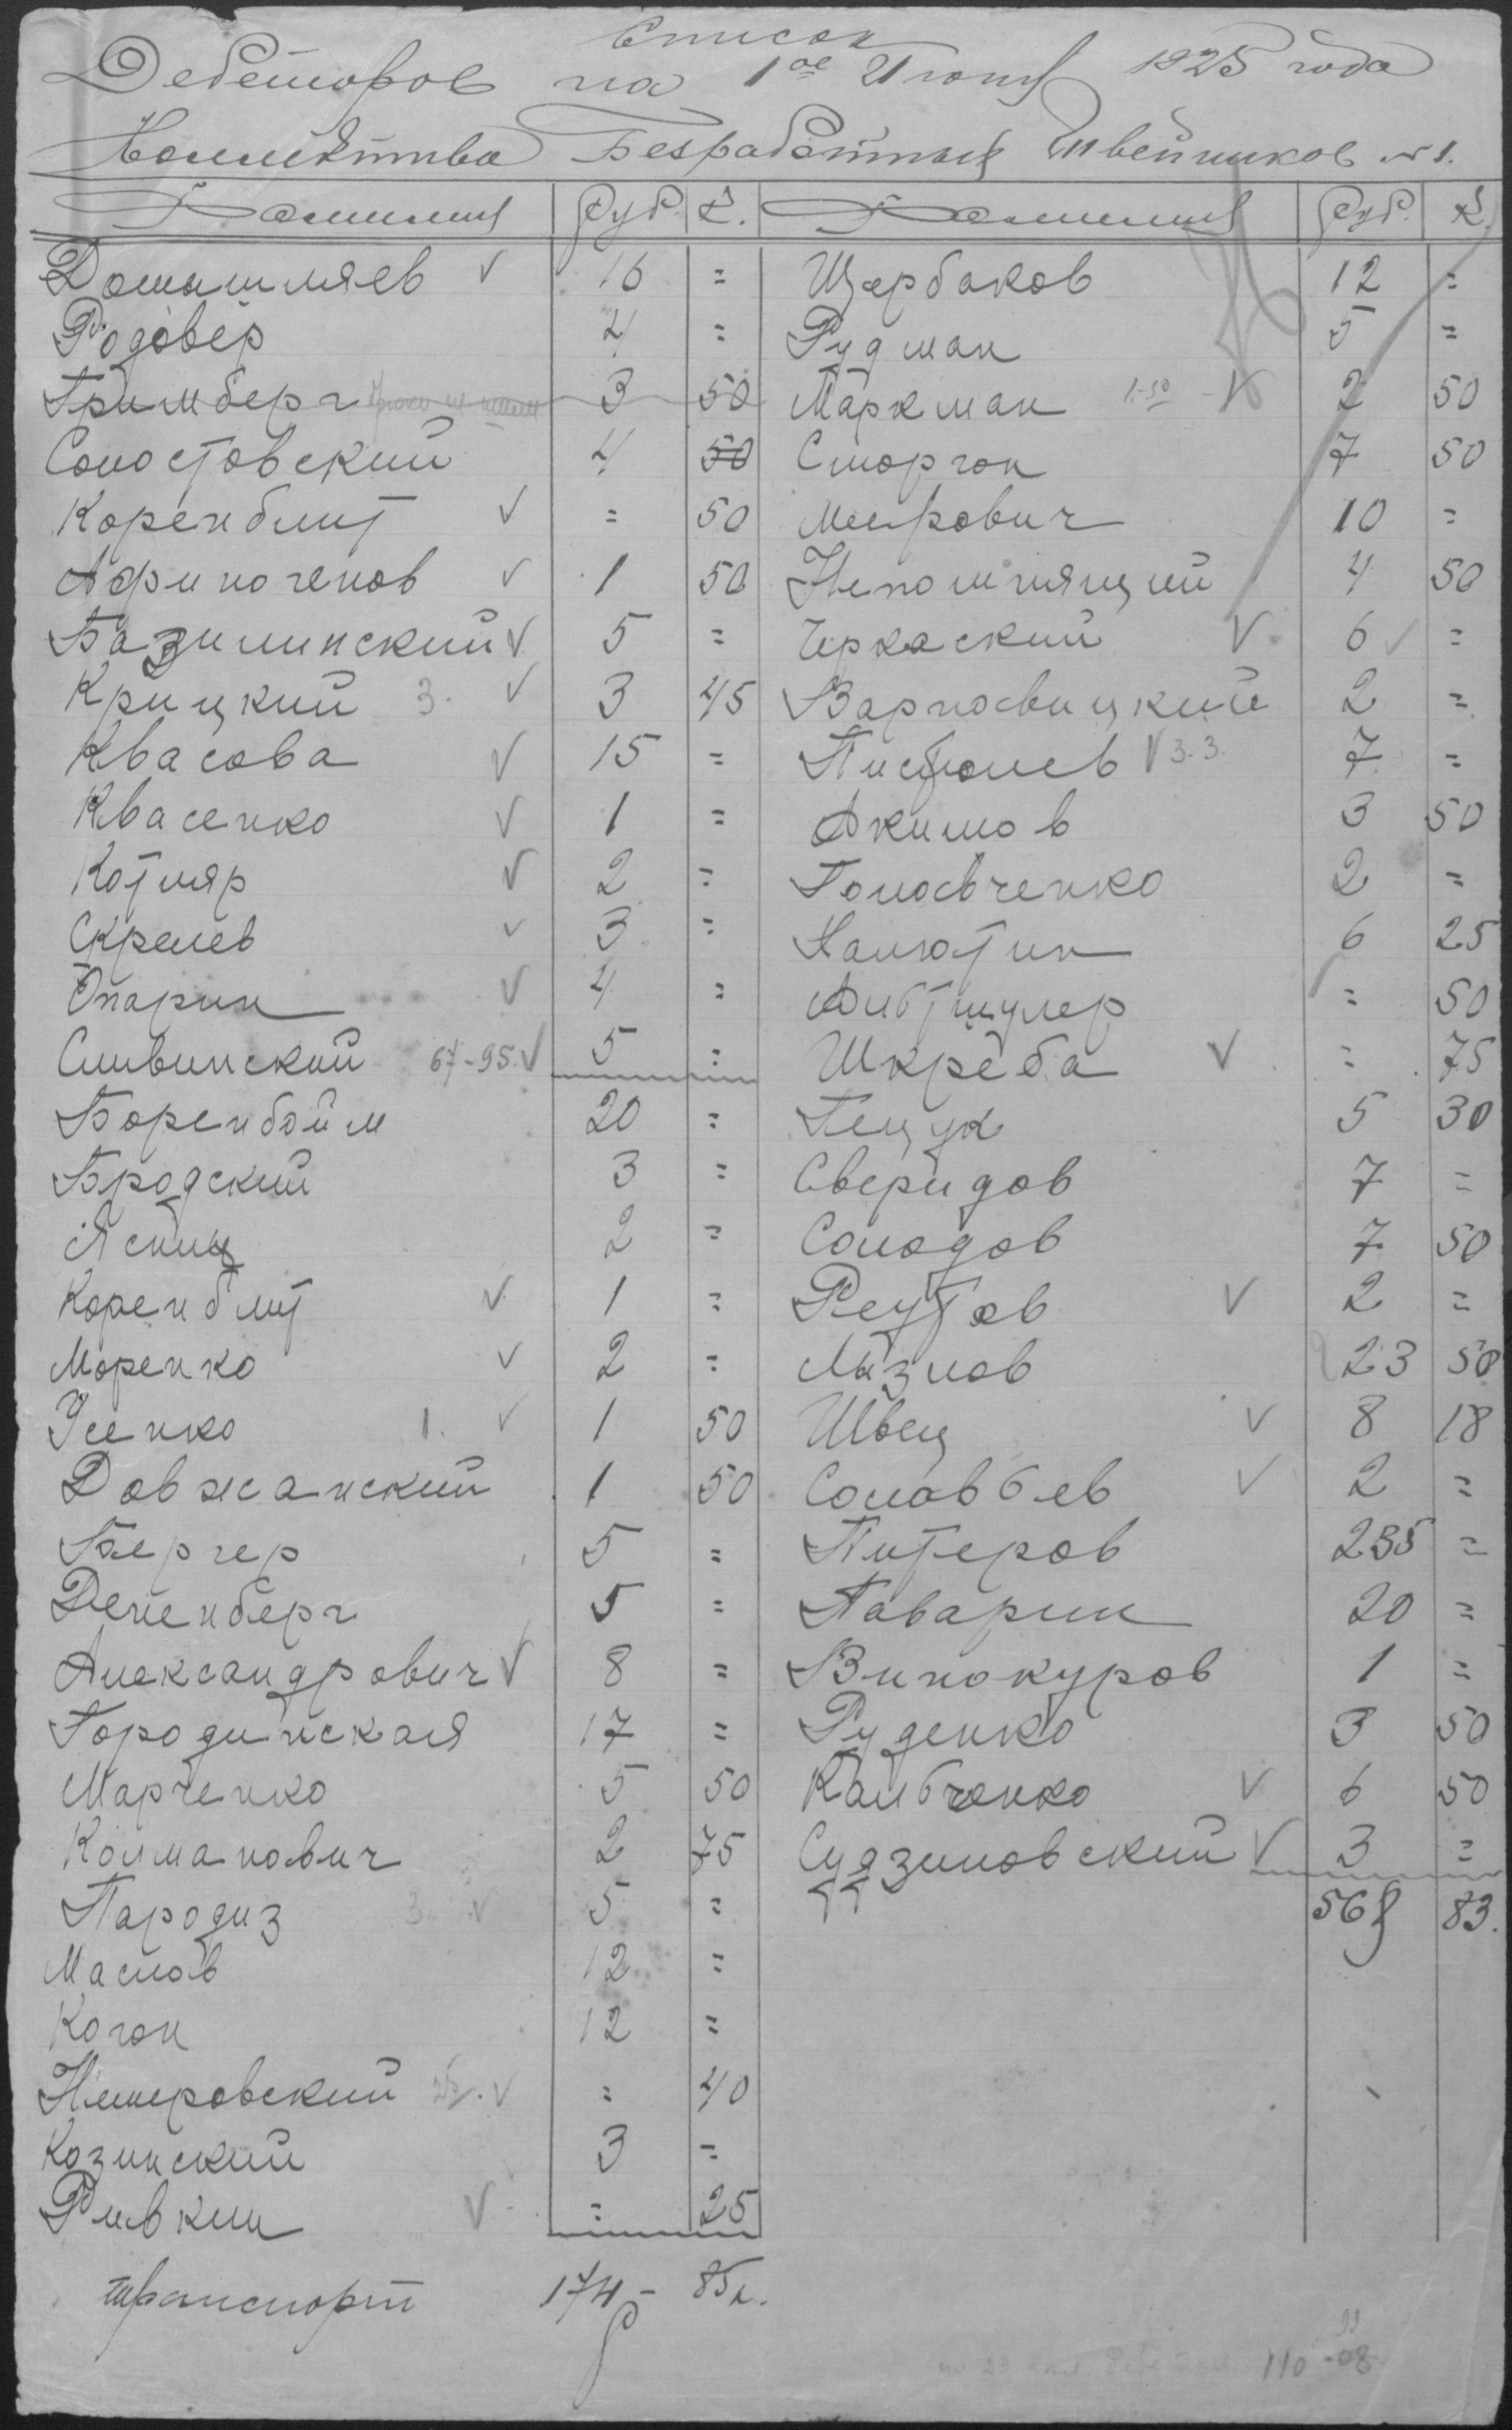 Список
Дебеторов на 1ое Июня 1925 года
Коллектива Безработных Швейников №1.
Фамилия Руб. К. Фамилия Руб. К.
Домашляев √ 16 = Щербаков 12 =
Родовер 4 = Рудман 5 =
Гримберг 3 50 Маркман 1.-50 2 50
Солостовский 4 50 Сморгон 7 50
Коренблит √ = 50 Меерович 10 =
Афиногенов √ 1 50 Непомнящий 4 50
Базилинский √ 5 = Черкаский √ 6 √ =
Крицкий 3. √ 3 45 Варновицкий 2 =
Квасова √ 15 = Пистолев √ 3.3. 7 =
Квасенко √ 1 = Акимов 3 50
Котляр √ 2 = Головченко 2 =
Скрелев √ 3 = Налютин 6 25
Опарин √ 4 = Альтшулер = 50
Сливинский 67-95. √ 5 = Шкреба √ = 75
Боренбойм 20 = Пещук 5 30
Бродский 3 = Сверидов 7 =
Яскиц 2 = Солодов 7 50
Коренблит √ 1 = Реутов √ 2 =
Моренко √ 2 = Лазнов 23 50
Усенко 1. √ 1 50 Швец √ 8 18
Довжанский 1 50 Соловьев √ 2 =
Бергер 5 = Питеров 235 =
Дененберг 5 = Паварин 20 =
Александрович √ 8 = Винокуров 1 =
Городинская 17 = Руденко 3 50
Марченко 5 50 Кальченко √ 6 50
Колманович 2 75 Судзиловский √ 3 =
Народиз 3. √ 5 = 568 83.
Маслов 12 =
Коган 12 =
Немеровский √ = 40
Козинский 3 =
Ривкин √ = 25
транспорт 174 - 85к.
110 -08